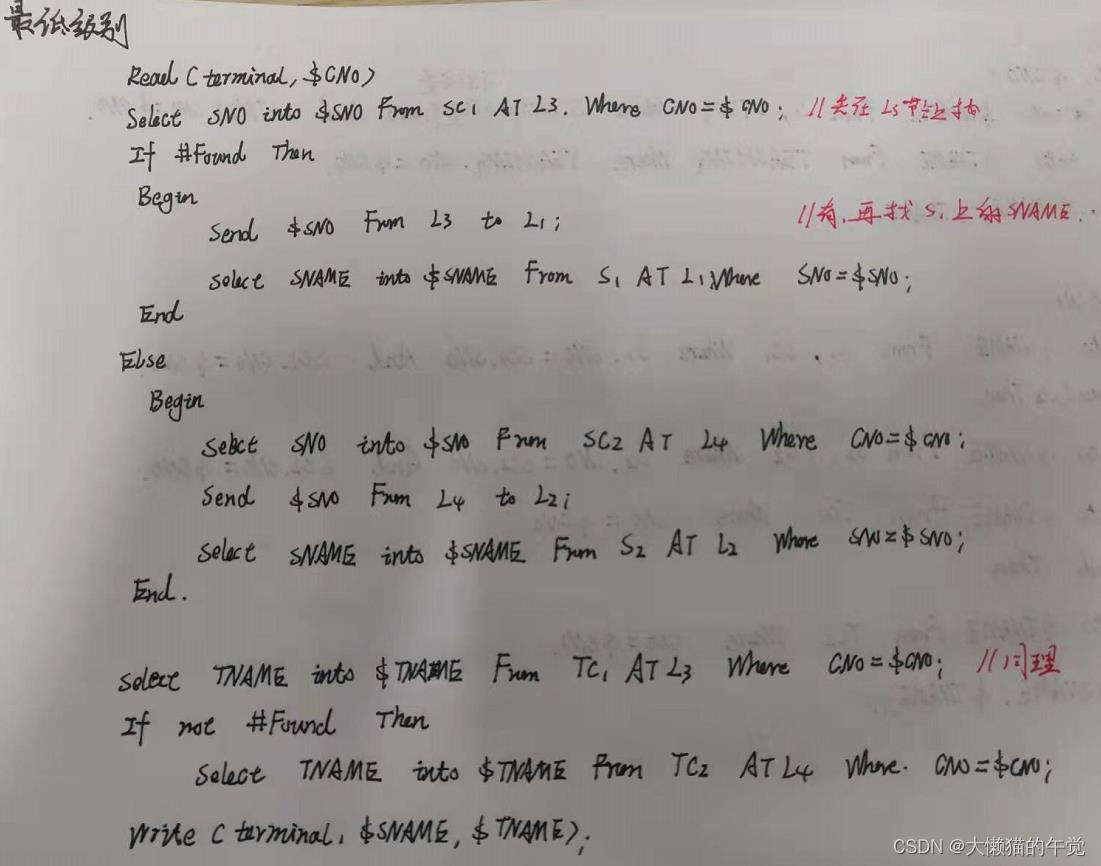 最低级别
Read (terminal, $CNO)
Select SNO into $SNO From SC1 AT L3. Where CNO=$CNO; //先在L3节点上找.
If #Found Then
Begin
Send $SNO From L3 to L1; //有,再找S1上的SNAME.
select SNAME into $SNAME From S1 AT L1 Where SNO=$SNO;
End
Else
Begin
Select SNO into $SNO From SC2 AT L4 Where CNO=$CNO;
Send $SNO From L4 to L2;
Select SNAME into $SNAME From S2 AT L2 Where SNO=$SNO;
End.
select TNAME into $TNAME From TC1 AT L3 Where CNO=$CNO; //同理
If not #Found Then
Select TNAME into $TNAME From TC2 AT L4 Where. CNO=$CNO;
Write (terminal, $SNAME, $TNAME);
CSDN @大懒猫的午觉